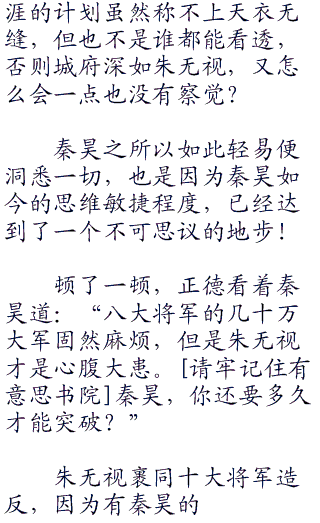 涯的计划虽然称不上天衣无
缝，但也不是谁都能看透，
否则城府深如朱无视，又怎
么会一点也没有察觉？
秦昊之所以如此轻易便
洞悉一切，也是因为秦昊如
今的思维敏捷程度，已经达
到了一个不可思议的地步！
顿了一顿，正德看着秦
昊道：“八大将军的几十万
大军固然麻烦，但是朱无视
才是心腹大患。[请牢记住有
意思书院]秦昊，你还要多久
才能突破？”
朱无视裹同十大将军造
反，因为有秦昊的